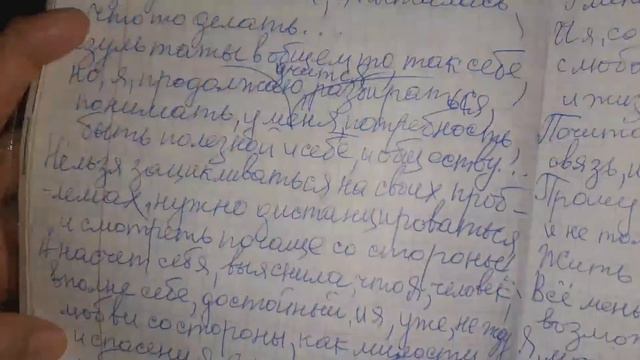 что то делать...
зультаты в общем то так себе
но, я, продолжаю, учиться разбираться,
понимать, у меня, потребность,
быть полезной и себе, и обществу...
Нельзя зацикливаться на своих проб-
лемах, нужно дистанцироваться
и смотреть почаще со стороны!
А насчет себя, выяснила, что я, человек
вполне себе, достойный, и я, уже, не жду
любви со стороны, как милости
и спасения
И я, со
слюбо
и жиз
Почита
связь, и
Прошу
и не то
Жить
Всё мень
возмо